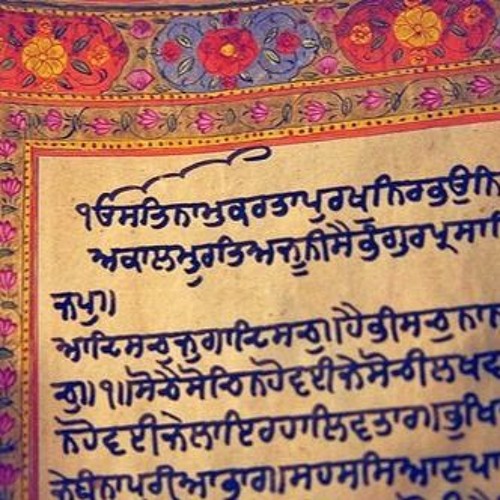 ੴਸਤਿਨਾਮੁਕਰਤਾਪੁਰਖੁਨਿਰਭਉਨਿ
ਅਕਾਲਮੂਰਤਿਅਜੂਨੀਸੈਭੰਗੁਰਪ੍ਰਸਾ
ਜਪੁ॥
ਆਦਿਸਚੁਜੁਗਾਦਿਸਚੁ॥ਹੈਭੀਸਚੁਨਾਨ
ਚੁ॥੧॥ਸੋਚੈਸੋਚਿਨਹੋਵਈਜੇਸੋਚੀਲਖਵ
ਨਹੋਵਈਜੇਲਾਇਰਹਾਲਿਵਤਾਰ॥ਭੁਖਿ
ਜੇਬੰਨਾਪੁਰੀਆਭਾਰ॥ਸਹਸਸਿਆਣਪਾ